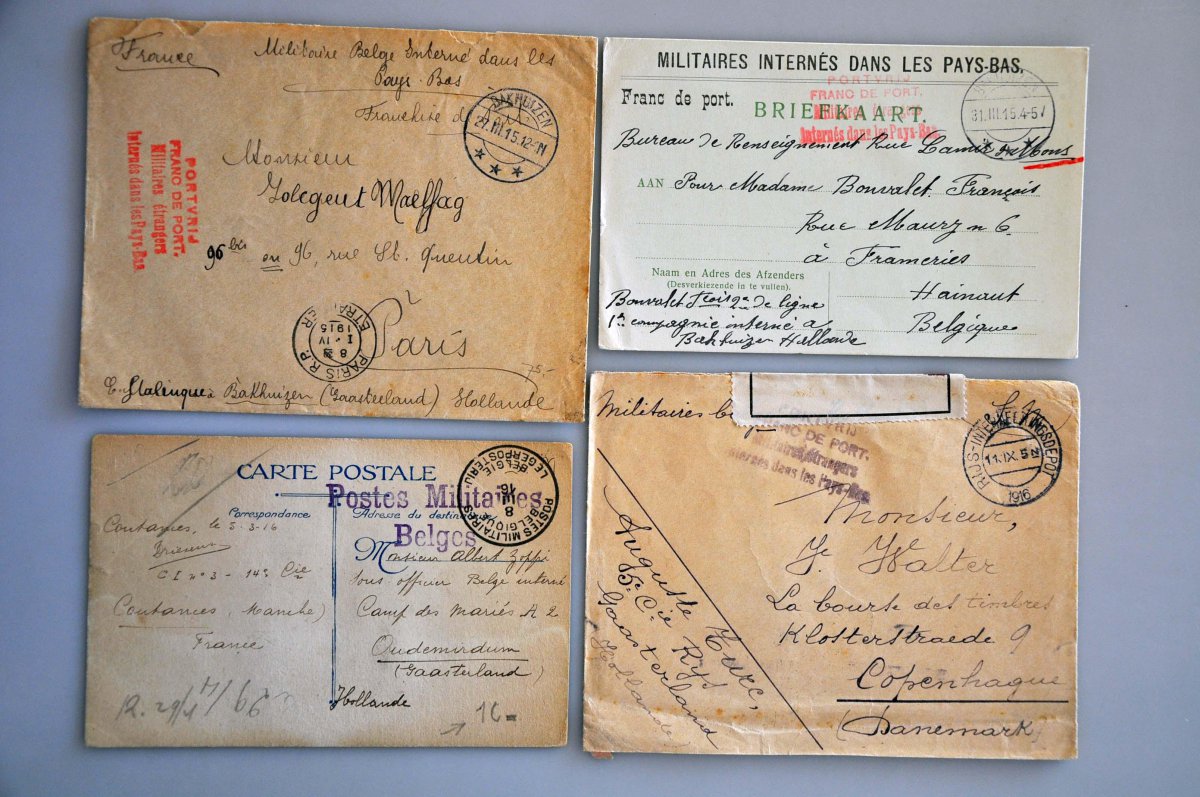 France
Militaire Belge Interné dans les
Pays-Bas
Franchise de
BAKHUIZEN
27.III.15.12-1N
PORTVRIJ
FRANC DE PORT.
Militaires étrangers
Internés dans les Pays-Bas
Monsieur
96 bis
ou 96, rue St. Quentin
Paris
PARIS R.P.
ETRANGER
8
I - IV
1915
75,-
à Bakhuizen (Gaasterland) Hollande
MILITAIRES INTERNÉS DANS LES PAYS-BAS.
Franc de port.
BRIEFKAART.
PORTVRIJ
FRANC DE PORT.
Militaires étrangers
Internés dans les Pays-Bas
31.III.15.4-5
Bureau de Renseignement Rue Mons
AAN Pour Madame Bonvalet François
Rue Maury n 6
à Frameries
Hainaut
Belgique
Naam en Adres des Afzenders
(Desverkiezende in te vullen).
Bonvalet de ligne
compagnie interné a
Bakhuizen Hollande
CARTE POSTALE
Correspondance
Adresse du destinataire
Postes Militaires
Belges
POSTES MILITAIRES BELGIQUE
BELGIE LEGERPOSTERIJ
8
III
16
Coutances, le 3-3-16
C I n° 3 - 14e Cie
Coutances, (Manche)
France
Monsieur Albert Zoppi
Sous-officier Belge interné
Camp des Mariés A 2
Oudemirdum
(Gaasterland)
Hollande
Militaires
PORTVRIJ
FRANC DE PORT.
Militaires étrangers
Internés dans les Pays-Bas
RIJS-INTERNEERINGSDEPOT
11.IX.5N
1916
Monsieur,
J. Walter
La bourse des timbres
Klosterstraede 9
Copenhague
(Danemark)
Auguste
5e Cie Rys
Gaasterland
(Hollande)